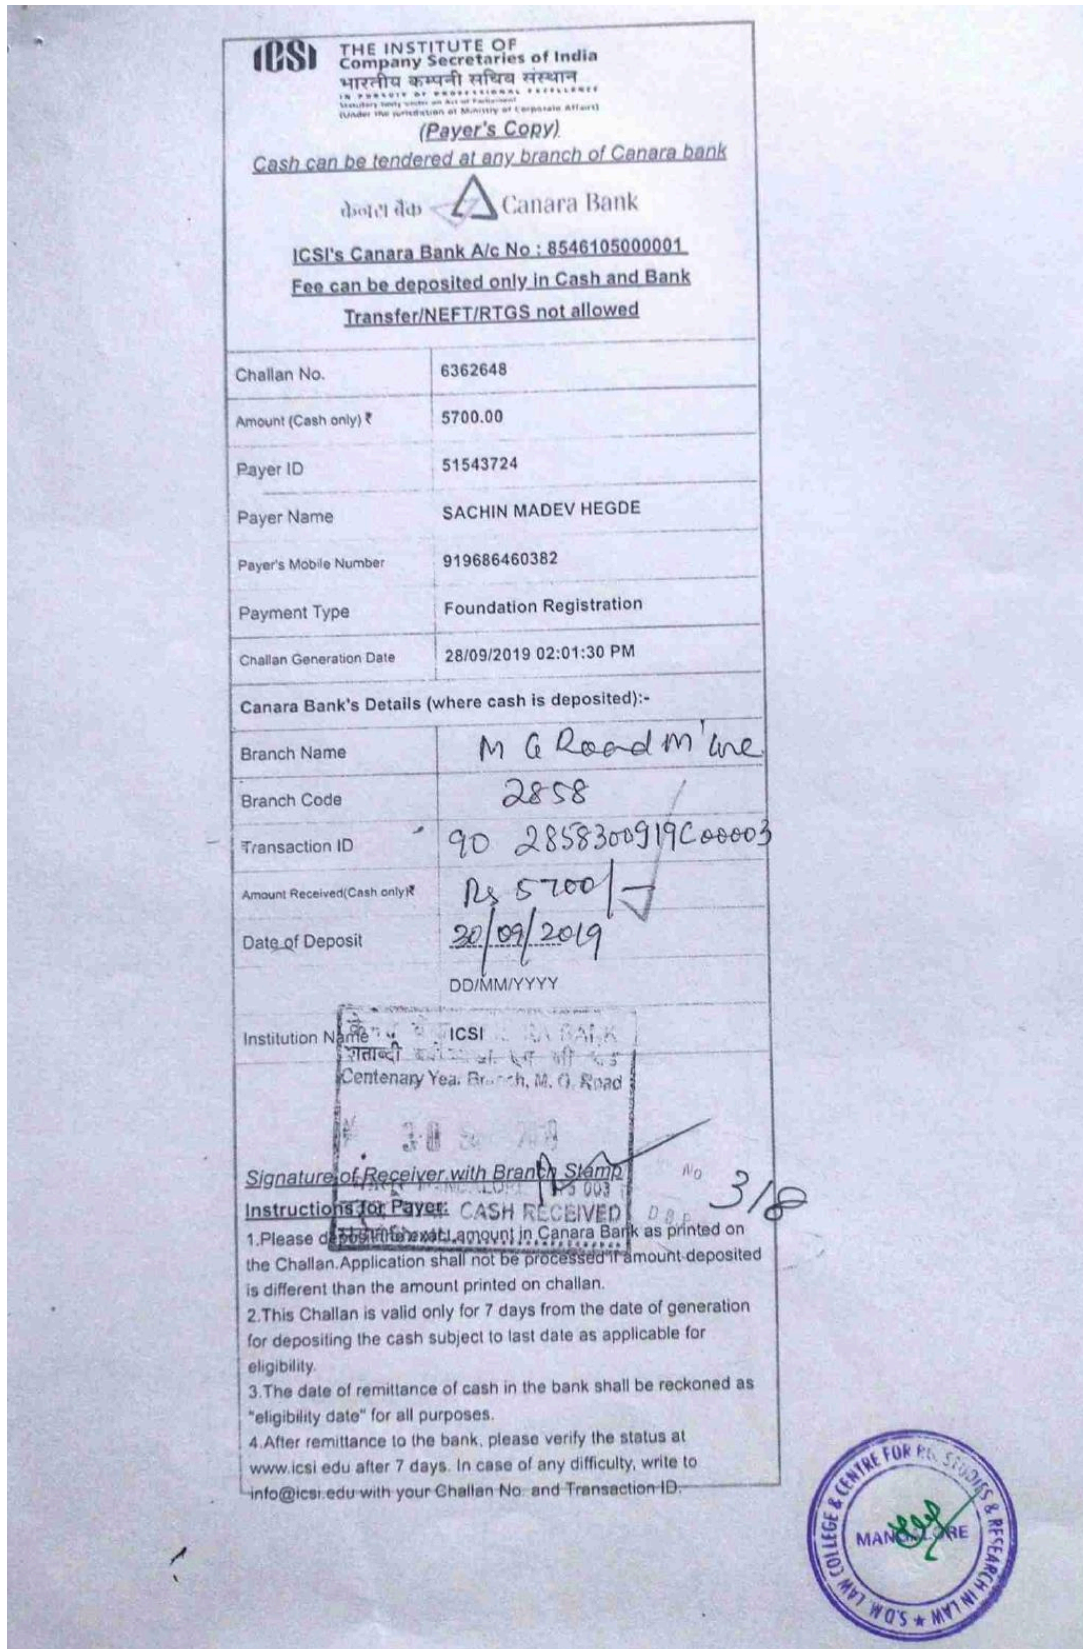 ICSI
THE INSTITUTE OF
Company Secretaries of India
भारतीय कम्पनी सचिव संस्थान
IN PURSUIT OF PROFESSIONAL EXCELLENCE
Statutory body under an Act of Parliament
(Under the jurisdiction of Ministry of Corporate Affairs)
(Payer's Copy)
Cash can be tendered at any branch of Canara bank
केनरा बैंक Canara Bank
ICSI's Canara Bank A/c No : 8546105000001
Fee can be deposited only in Cash and Bank
Transfer/NEFT/RTGS not allowed
Challan No. 6362648
Amount (Cash only) ₹ 5700.00
Payer ID 51543724
Payer Name SACHIN MADEV HEGDE
Payer's Mobile Number 919686460382
Payment Type Foundation Registration
Challan Generation Date 28/09/2019 02:01:30 PM
Canara Bank's Details (where cash is deposited):-
Branch Name M G Road M'lore
Branch Code 2858
Transaction ID 90 2858300919C00003
Amount Received(Cash only)₹ Rs 5700/-
Date of Deposit 30/09/2019
DD/MM/YYYY
Institution Name ICSI
BANK
शताब्दी
Centenary Year Branch, M. G. Road
30 2019
Signature of Receiver with Branch Stamp
MANGALORE 003
No 318
Instructions for Payer:
CASH RECEIVED
1.Please deposit the exact amount in Canara Bank as printed on
the Challan.Application shall not be processed if amount deposited
is different than the amount printed on challan.
2.This Challan is valid only for 7 days from the date of generation
for depositing the cash subject to last date as applicable for
eligibility.
3.The date of remittance of cash in the bank shall be reckoned as
"eligibility date" for all purposes.
4.After remittance to the bank, please verify the status at
www.icsi.edu after 7 days. In case of any difficulty, write to
info@icsi.edu with your Challan No. and Transaction ID.
S.D.M. LAW COLLEGE & CENTRE FOR P.G. STUDIES & RESEARCH IN LAW
MANGALORE